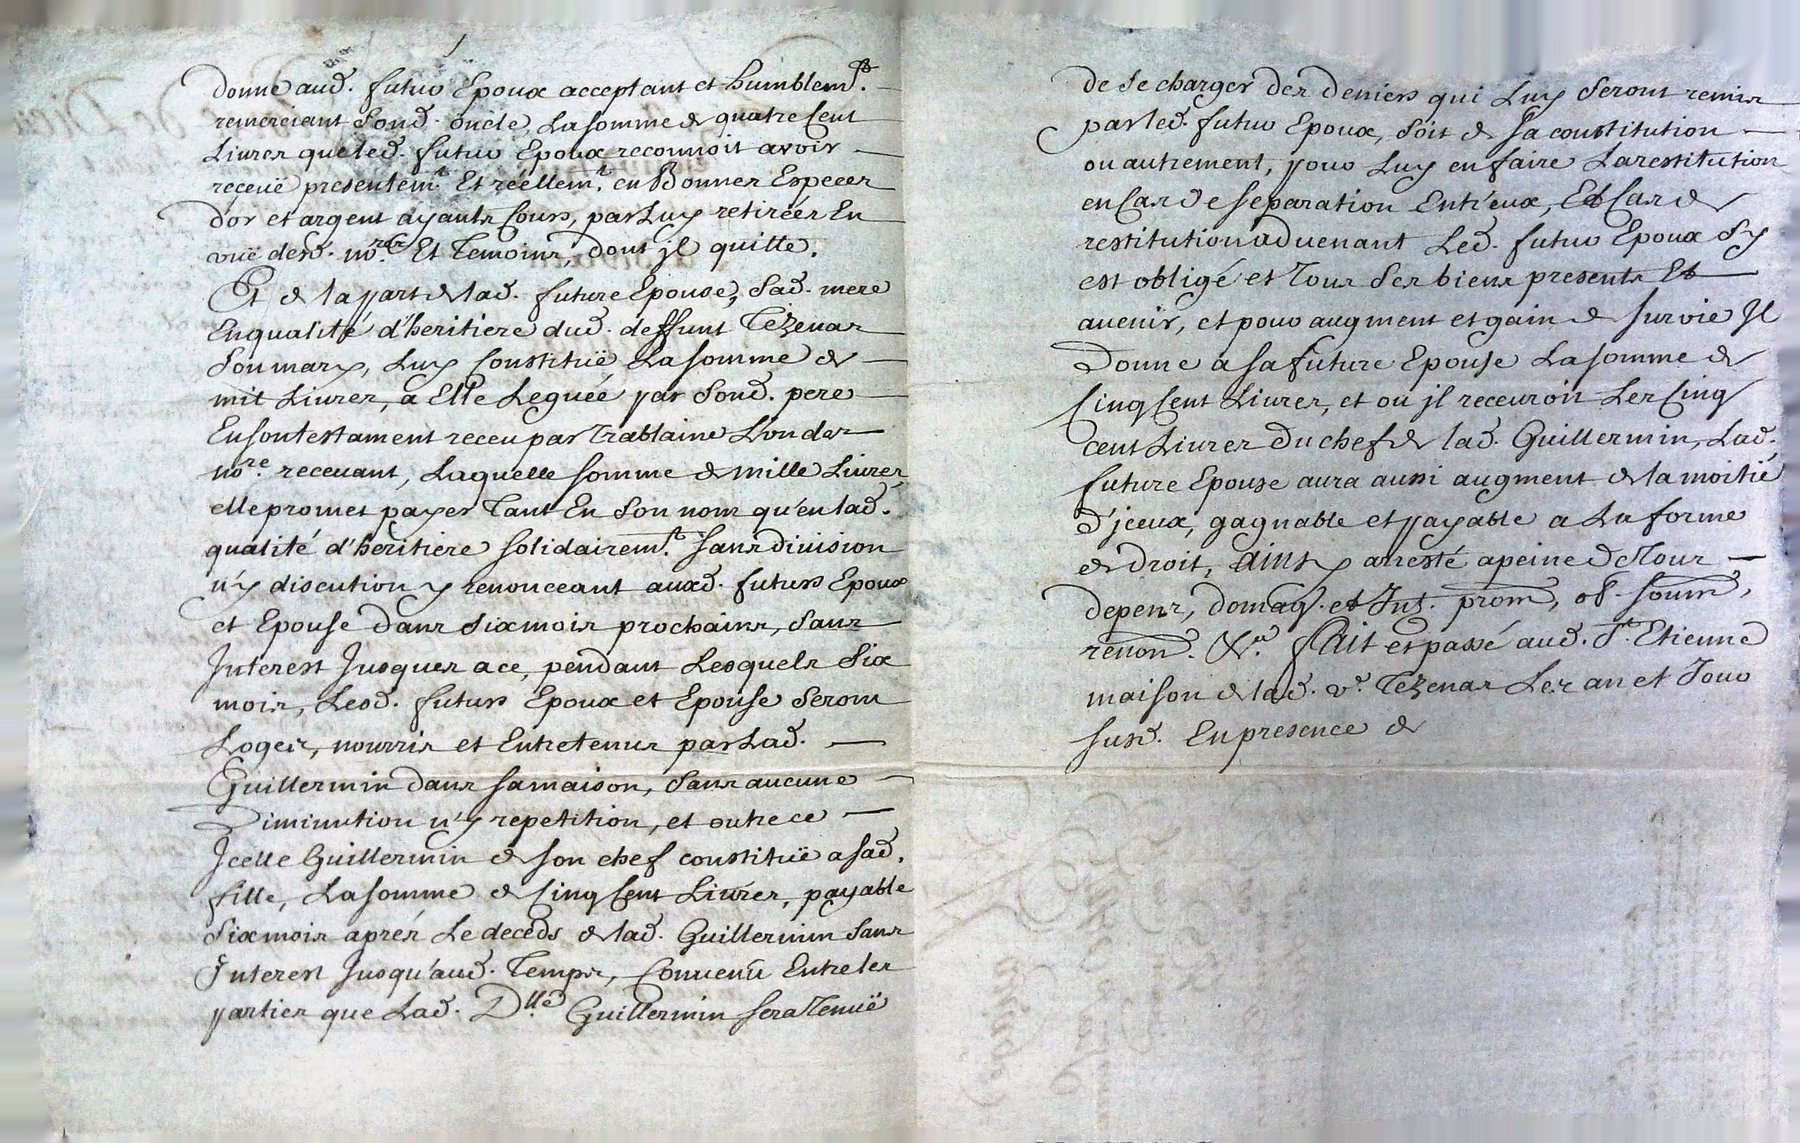 donne aud. futur Epoux acceptant et humblemt.
remerciant sond. oncle, La somme de quatre Cent
Livres que led. futur Epoux reconnoit avoir
receüe presentemt. Et réellemt. en Bonnes Especes
d'or et argent ayants Cours, par Luy retirées En
vuë desd. nores. Et Temoins, dont jl quitte.
Et de la part de lad. future Epouse, Sad. mere
En qualité d'heritiere dud. deffunt Tézenas
Son mary, Luy Constituë La somme de
mil Livres, a Elle Leguée par Sond. pere
En son testament receu par Trablaine
nore. recevant, Laquelle somme de mille Livres
elle promet payer Tant En Son nom qu'en lad.
qualité d'heritiere solidairemt. sans division
n'y discution y renonceant auxd. futurs Epoux
et Epouse dans six mois prochains, Sans
Interest Jusques a ce, pendant Lesquels Six
mois, Lesd. futurs Epoux et Epouse Seront
Logés, nourris et Entretenus par Lad.
Guillermin dans sa maison, Sans aucune
Diminution n'y repetition, et outre ce
Jcelle Guillermin de son chef constituë a sad.
fille, La somme de Cinq Cent Livres, payable
Six mois aprés Le deceds de lad. Guillermin Sans
Interest Jusqu'aud. Temps, Convenu Entre les
parties que Lad. Dlle. Guillermin sera Tenuë
de Se charger des deniers qui Luy Seront remis
par led. futur Epoux, Soit de sa constitution
ou autrement, pour Luy en faire La restitution
en Cas de separation Entr'eux, Et Cas de
restitution advenant Led. futur Epoux S'y
est obligé et Tous Ses biens presents Et
avenir, et pour augment et gain de survie Jl
Donne a sa future Epouse La somme de
Cinq Cent Livres, et ou jl recevroit Les Cinq
cent Livres du chef de lad. Guillermin, Lad.
future Epouse aura aussi augment de la moitié
d'jceux, gagnable et payable a La forme
de droit, ainsy arresté a peine de Tous
depens, domag. et Int. prom, ob. soum,
renon. &a. fait et passé aud. St. Etienne
maison de lad. ve. Tézenas Les an et Jour
susd. En presence de